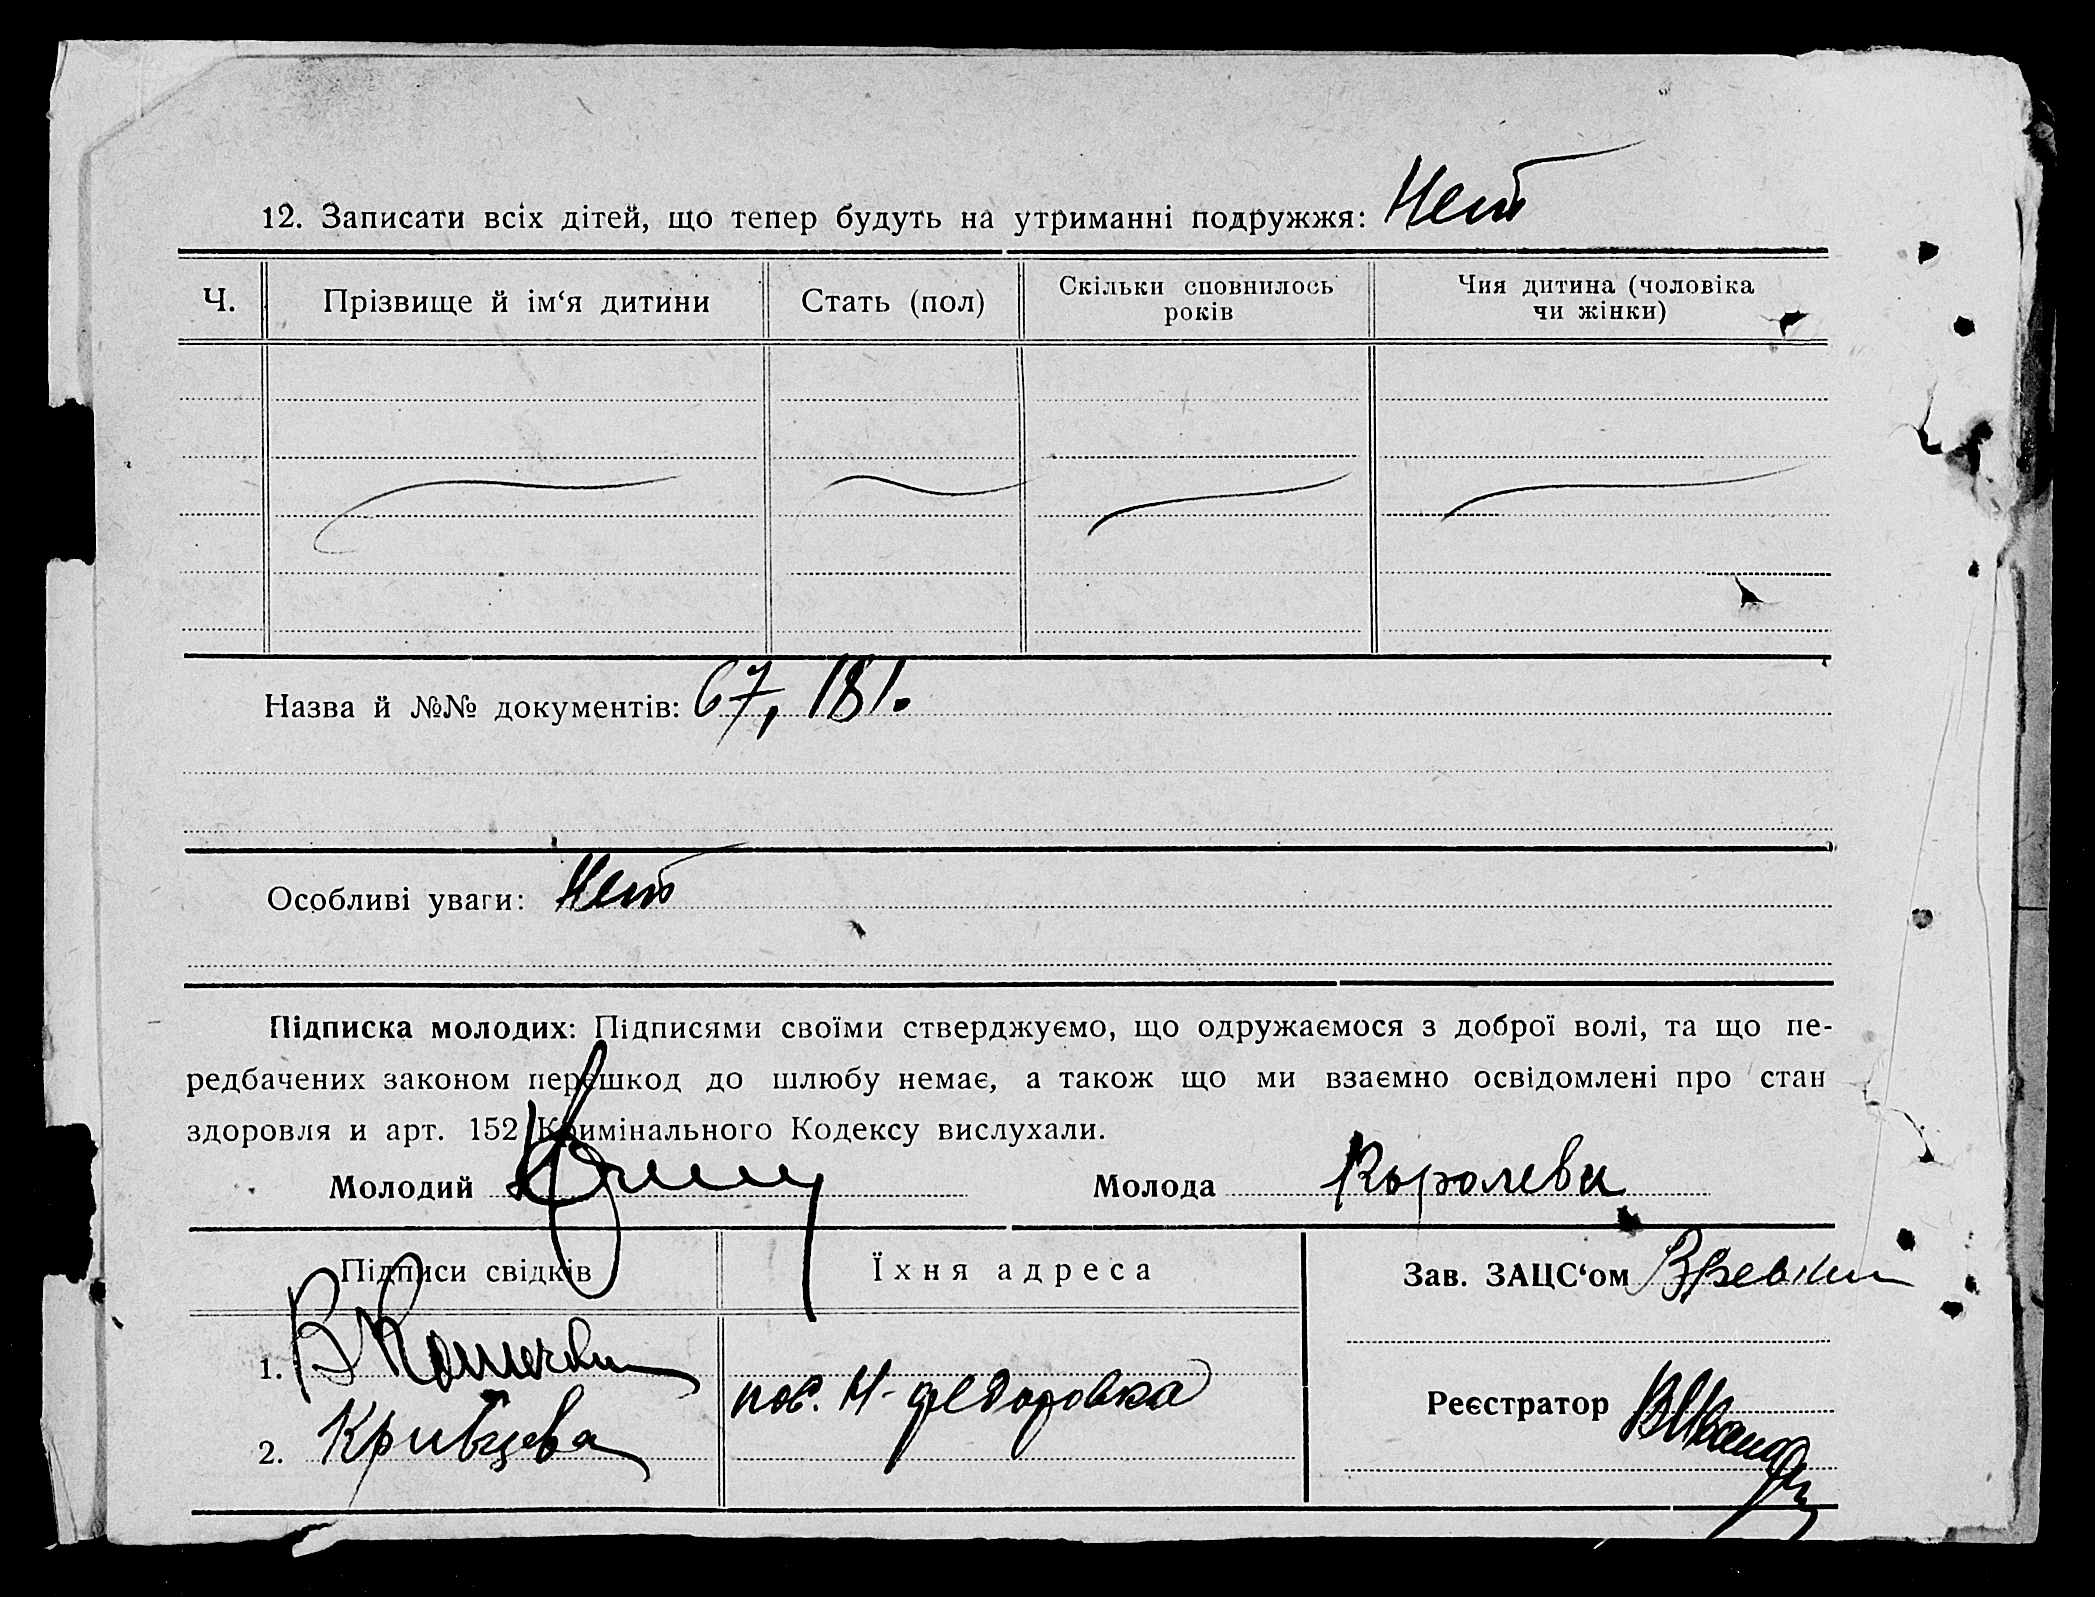 12. Записати всіх дітей, що тепер будуть на утриманні подружжя: Нет
Ч.
Прізвище й ім‘я дитини
Стать (пол)
Скільки сповнилось
років
Чия дитина (чоловіка
чи жінки)
Назва й №№ документів: 67, 181.
Особливі уваги: Нет
Підписка молодих: Підписями своїми стверджуємо, що одружаємося з доброї волі, та що пе-
редбачених законом перешкод до шлюбу немає, а також що ми взаємно освідомлені про стан
здоровля и арт. 152 Кримінального Кодексу вислухали.
Молодий
Молода Королева
Підписи свідків
Їхня адреса
Зав. ЗАЦС‘ом
1.
пос. Н-Федоровка
Реєстратор
2. Кривцова